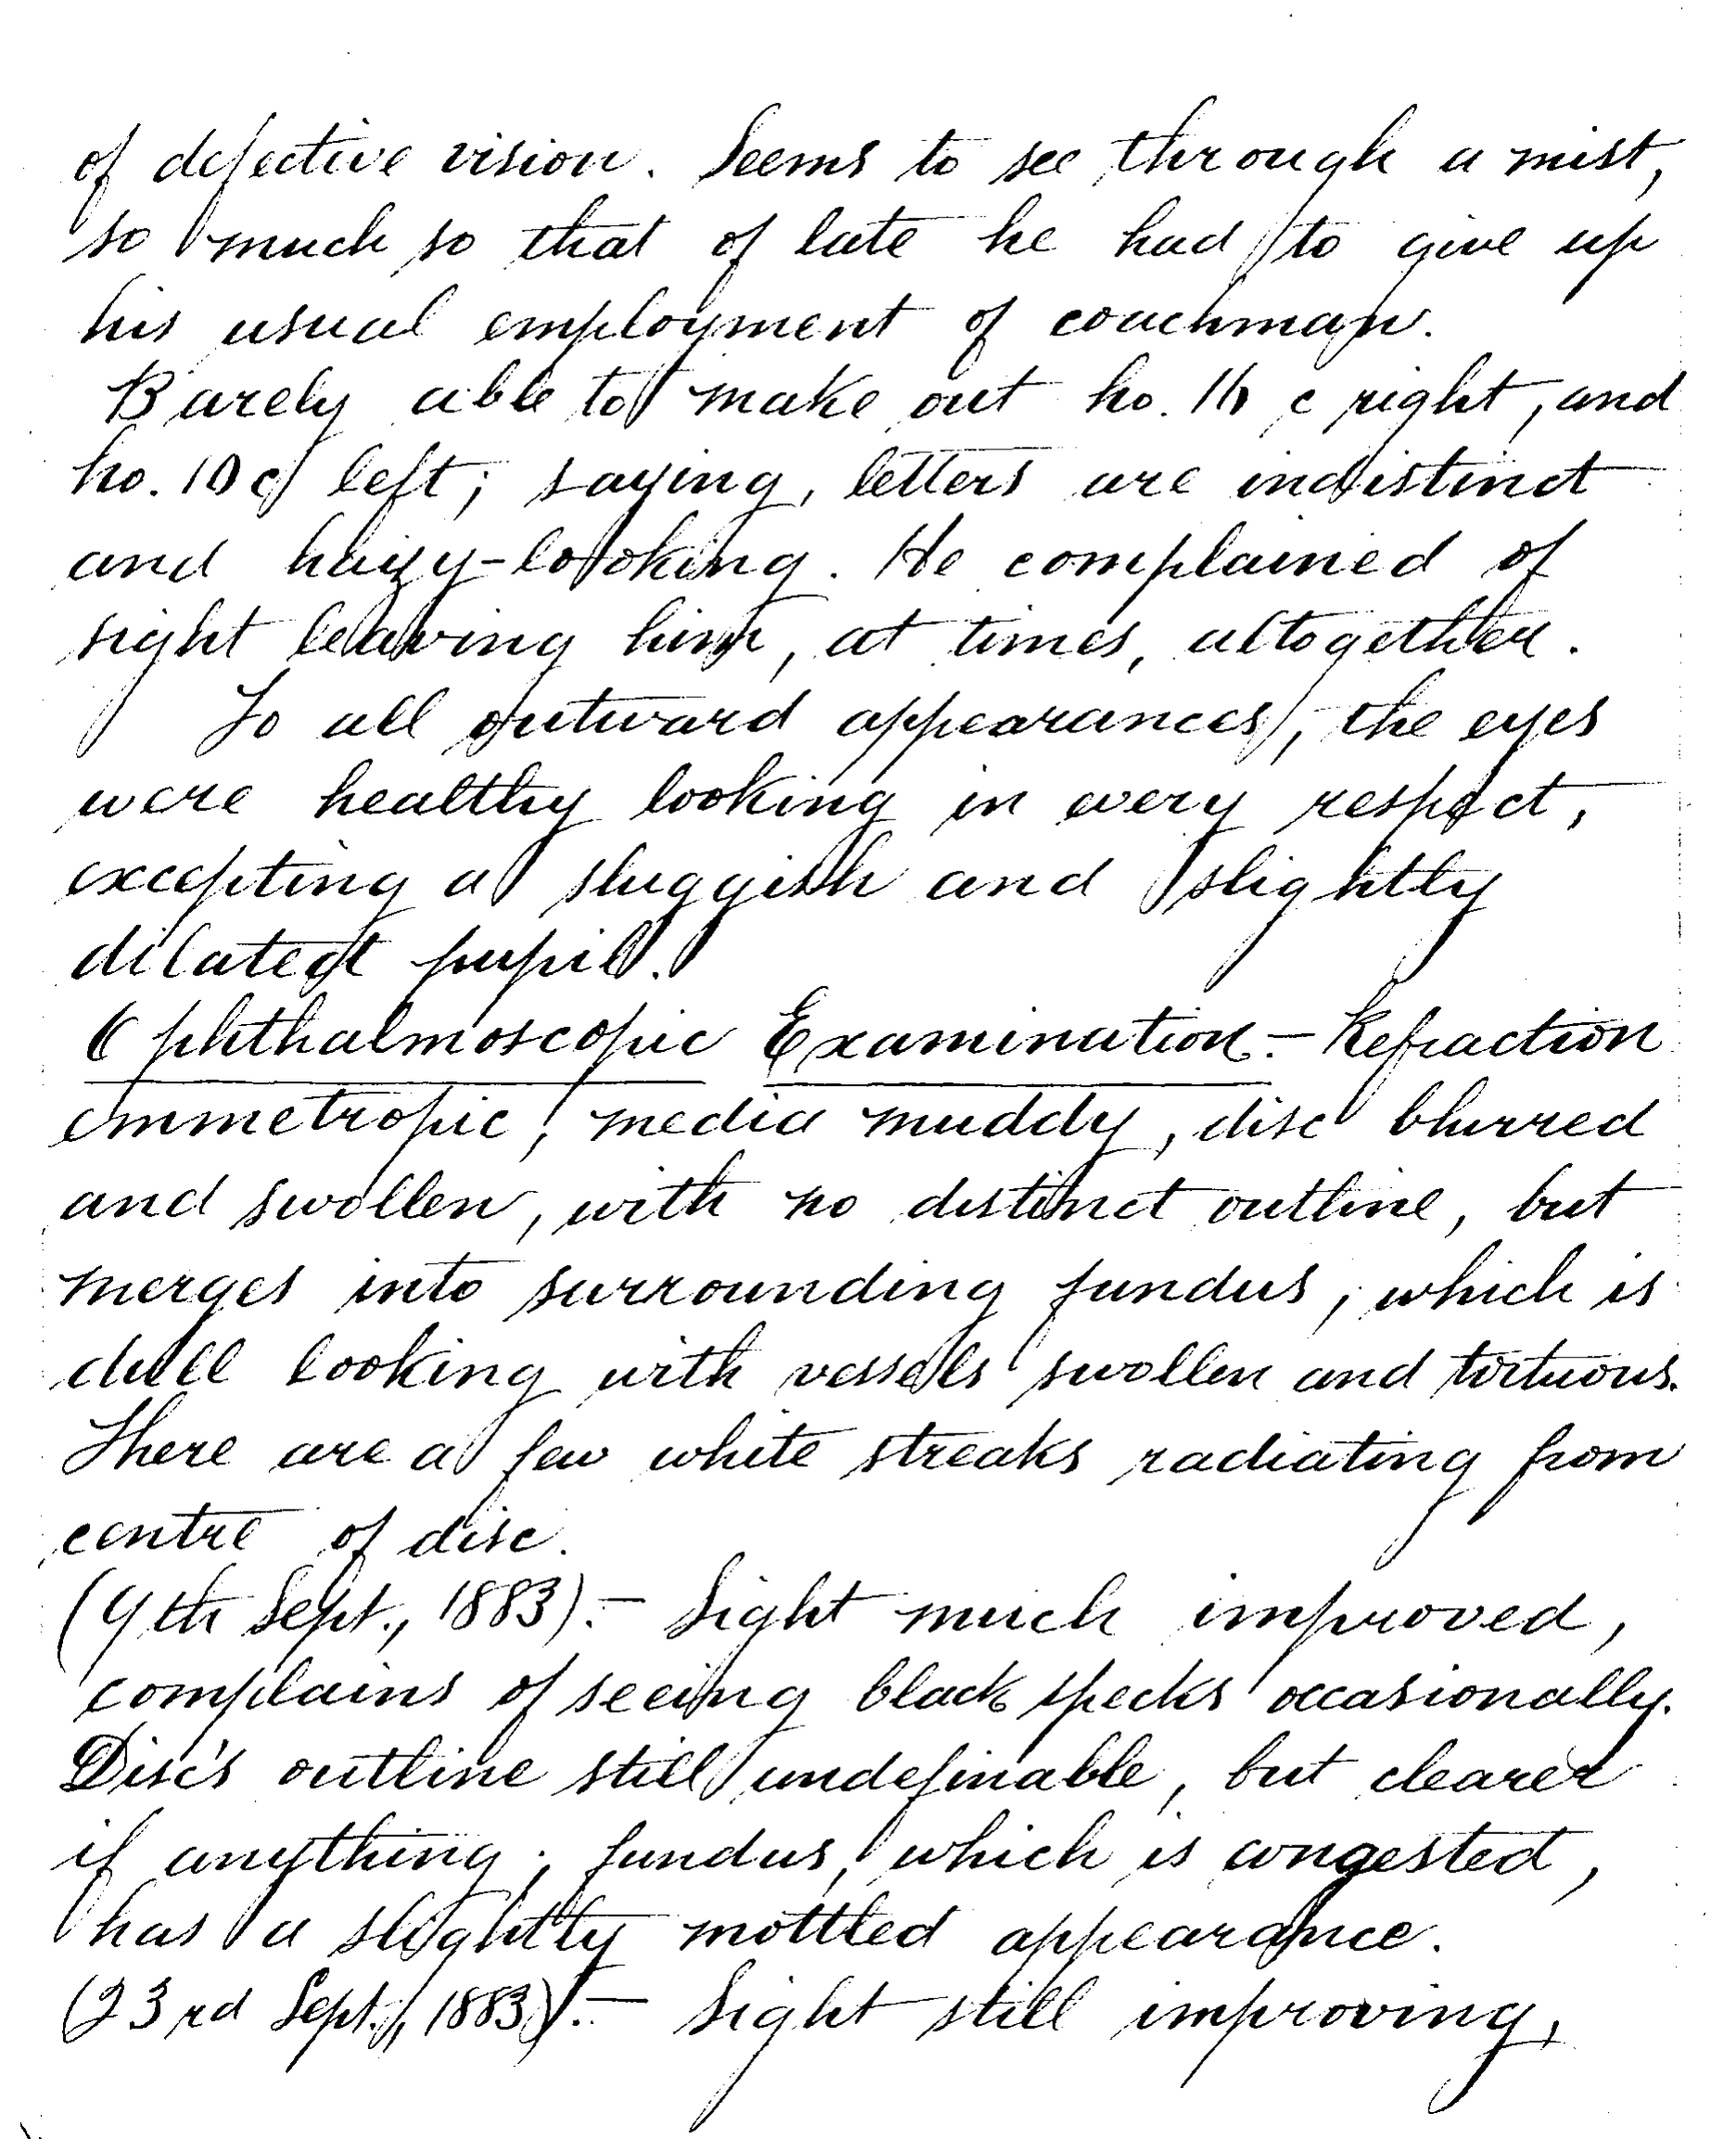 of defective vision. Seems to see through a mist,
so much so that of late he had to give up
his usual employment of coachman.
Barely able to make out no. 16 c right, and
no. 10 c left; saying, letters are indistinct
and haizy-looking. He complained of
sight leaving him, at times, altogether.
To all outward appearances, the eyes
were healthy looking in every respect,
excepting a sluggish and slightly
dilated pupil.
Ophthalmoscopic Examination.- Refraction
emmetropic, media muddy, disc blurred
and swollen, with no distinct outline, but
merges into surrounding fundus, which is
dull looking with vessels swollen and tortuous.
There are a few white streaks radiating from
centre of disc.
(9th Sept., 1883).- Sight much improved,
complains of seeing black specks occasionally.
Disc's outline still undefinable, but clearer
if anything; fundus, which is congested,
has a slightly mottled appearance.
(23rd Sept., 1883).- Sight still improving,